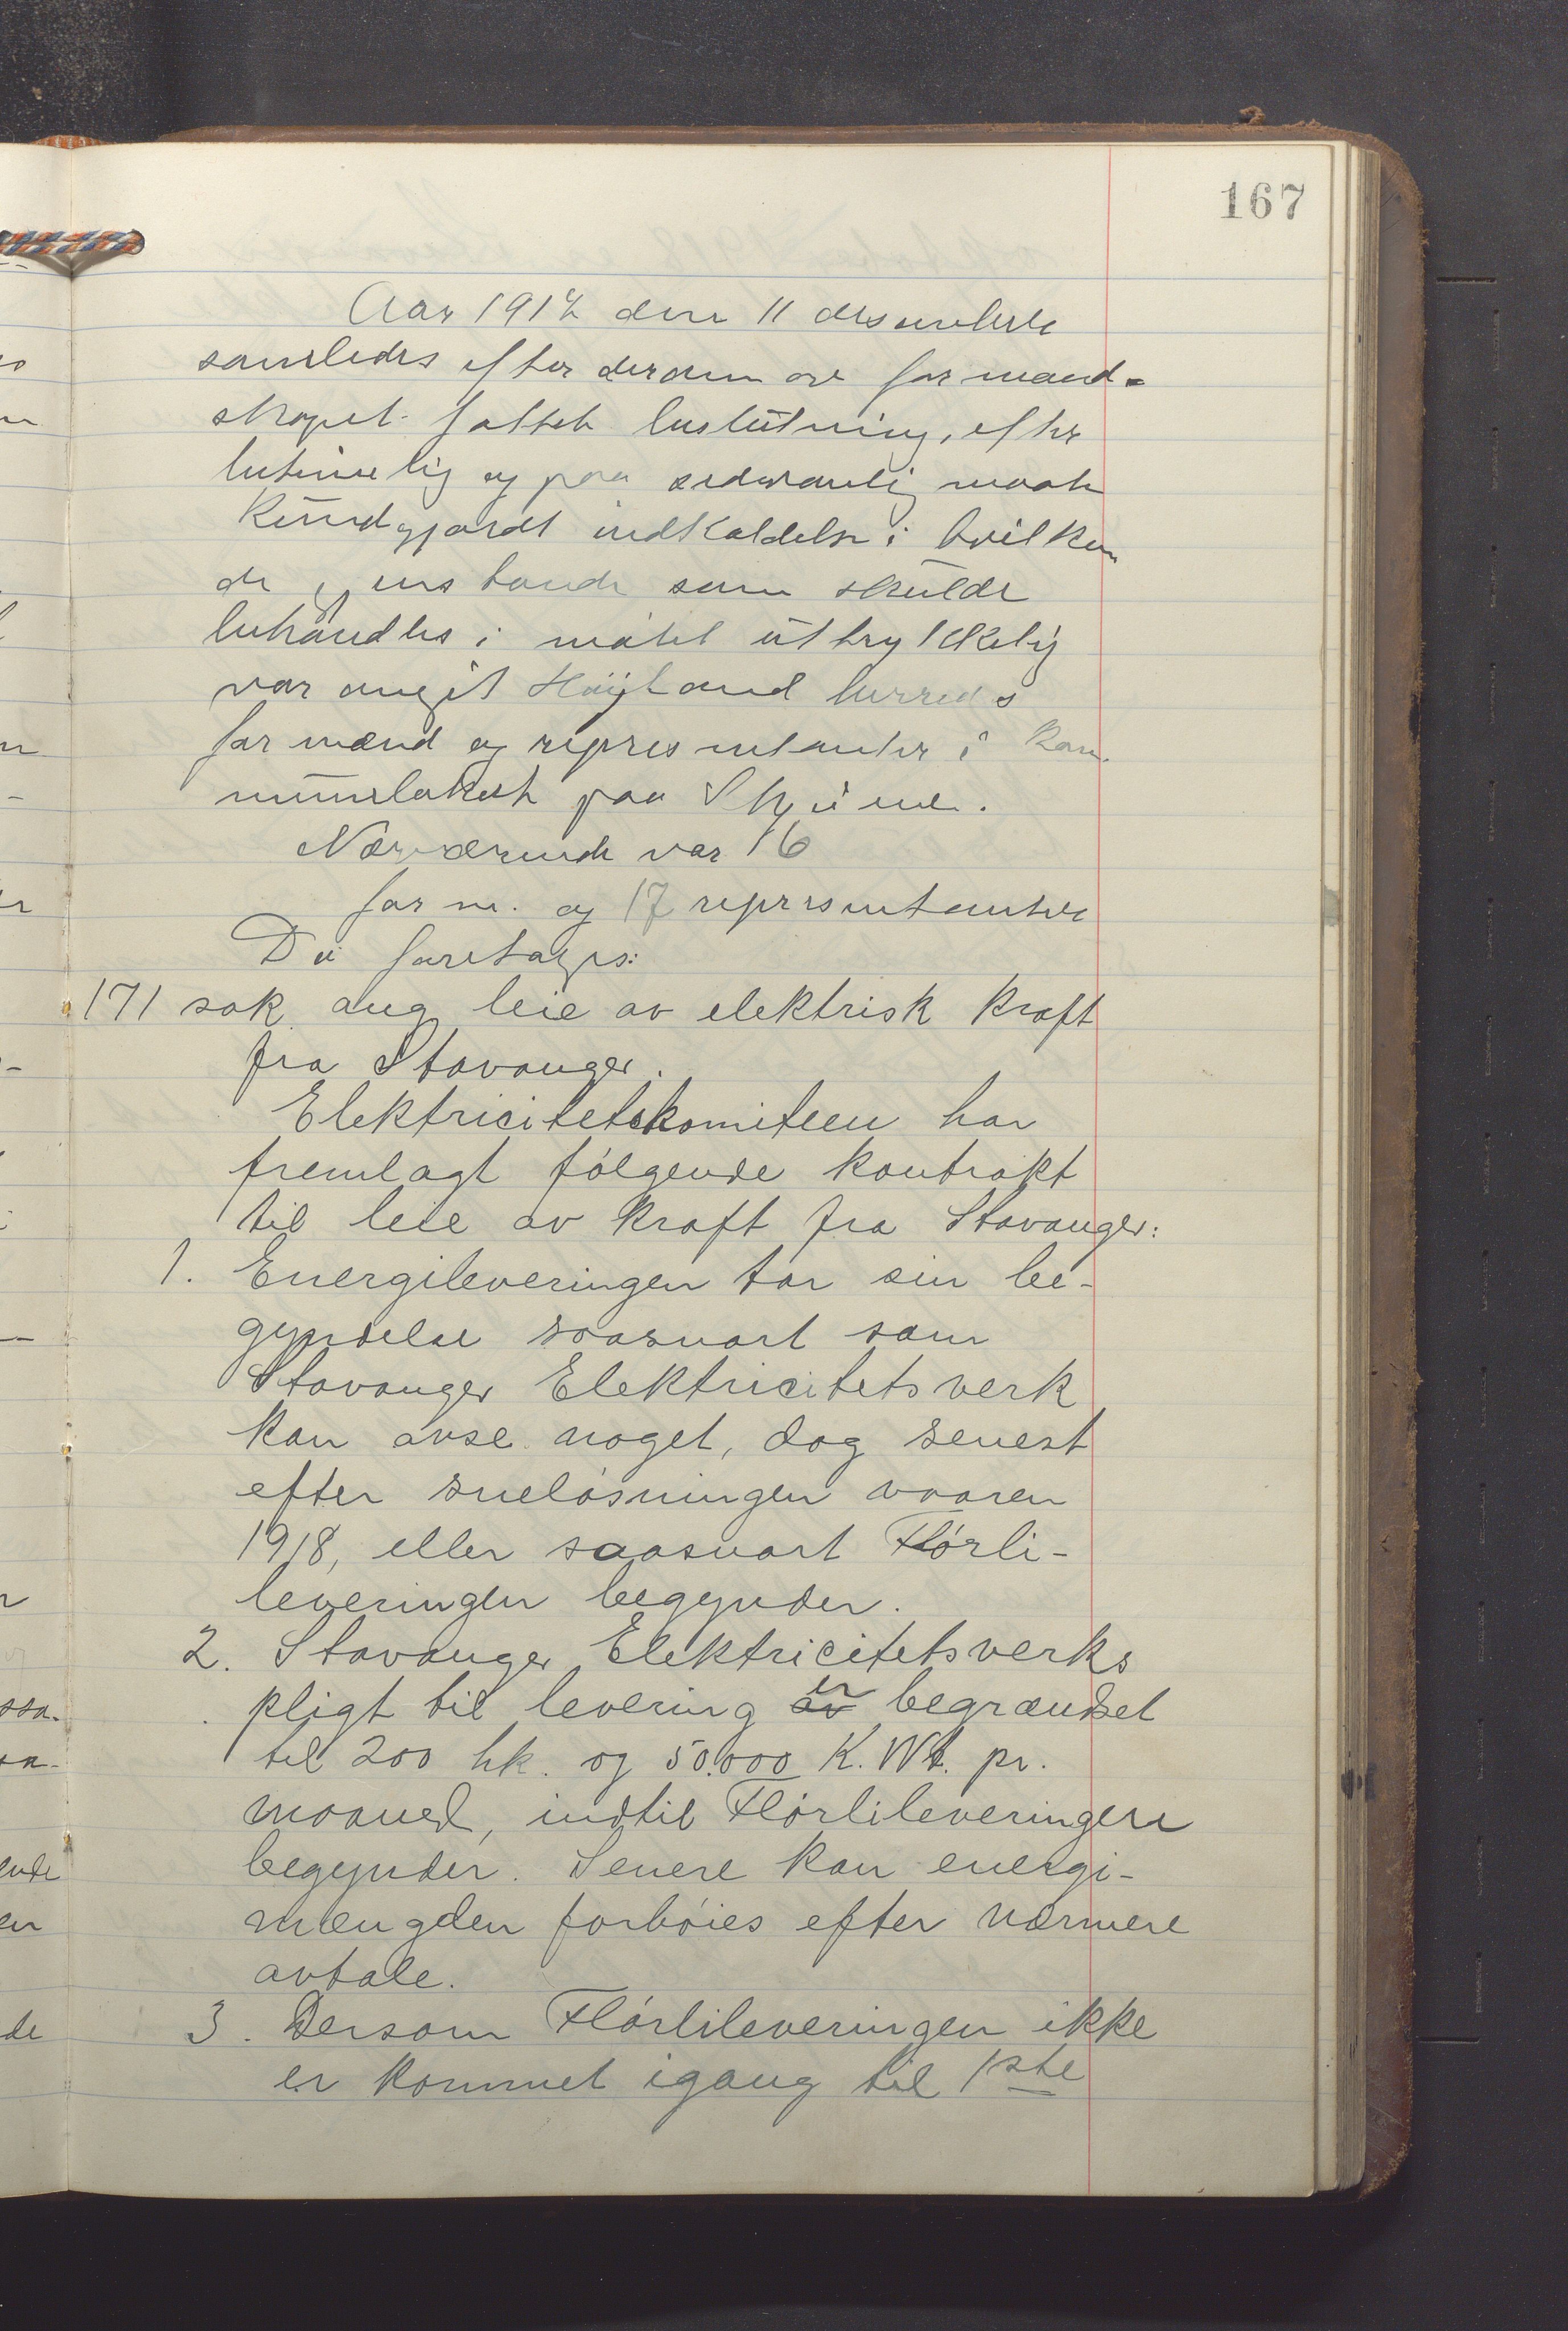 167
Aar 1917 den 11 desember
samledes efter derom av formand-
skapet fattet beslutning, efter
betimelig og paa sedvanlig maate
kundgjordt indkaldelse i hvilken
de gjenstande som skulde
behandles i møtet uttrykkelig
var angit Høyland herreds
formænd og representanter i kom-
munelokalet paa Skjæve.
Nærværende var 16
form. og 17 representanter
Da foretages:
171 sak ang leie av elektrisk kraft
fra Stavanger.
Elektricitetskomiteen har
fremlagt følgende kontrakt
til leie av kraft fra Stavanger:
1. Energileveringen tar sin be-
gyndelse saasnart som
Stavanger Elektricitetsverk
kan avse noget, dog senest
efter sneløsningen vaaren
1918, eller saasnart Flørli-
leveringen begynder.
2. Stavanger Elektricitetsverks
pligt til levering er begrændset
til 200 hk. og 50.000 K.Wt. pr.
maaned, indtil Flørlileveringen
begynder. Senere kan energi-
mængden forhøies efter nærmere
avtale.
3. Dersom Flørlileveringen ikke
er kommet igang til 1ste